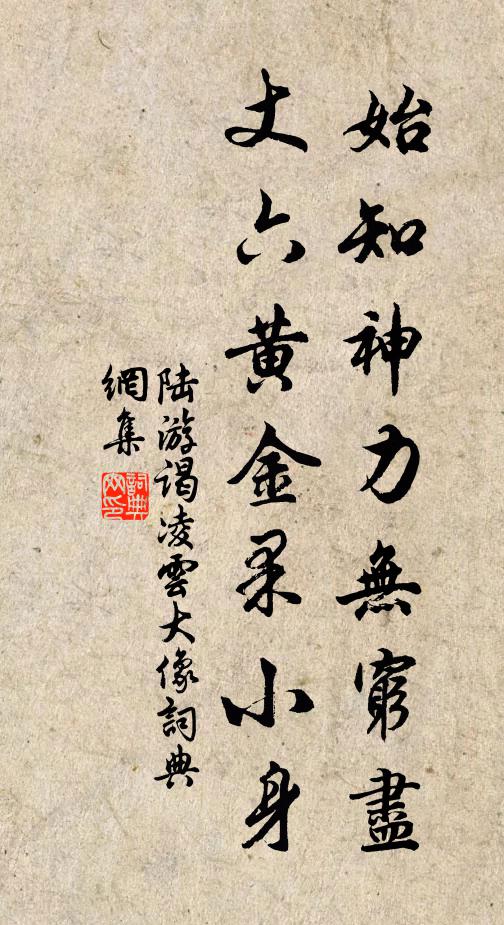 始知神力無窮盡
丈六黃金果小身
陆游謁凌雲大像詞典
網集
詞典
网印